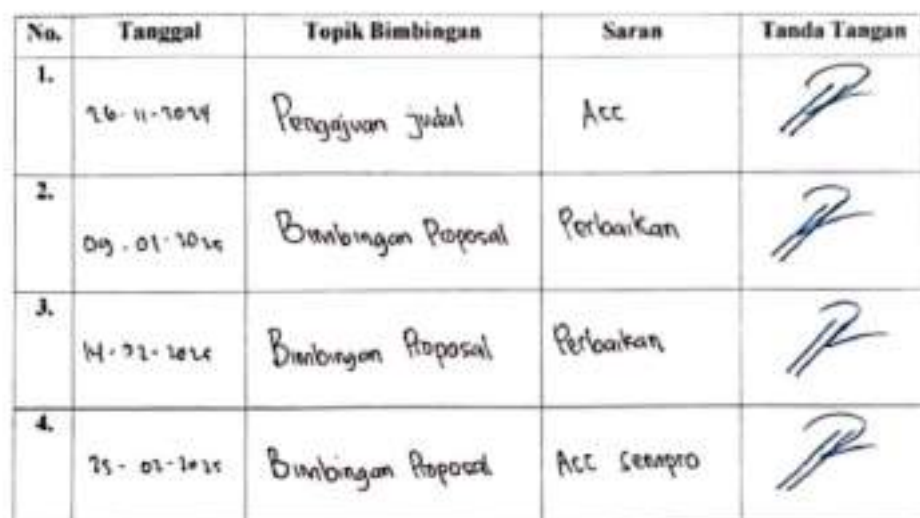 No. Tanggal Topik Bimbingan Saran Tanda Tangan
1. 26-11-2024 Pengajuan judul Acc
2. 09-01-2025 Bimbingan Proposal Perbaikan
3. 14-02-2025 Bimbingan Proposal Perbaikan
4. 25-02-2025 Bimbingan Proposal Acc sempro